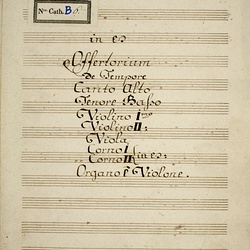 Nro Cath. B.
in es
Offertorium
de Tempore
Canto Alto
Tenore Basso
Violino Imo
Violino II:
Viola
Corno I
Corno II in es:
Organo é Violone.